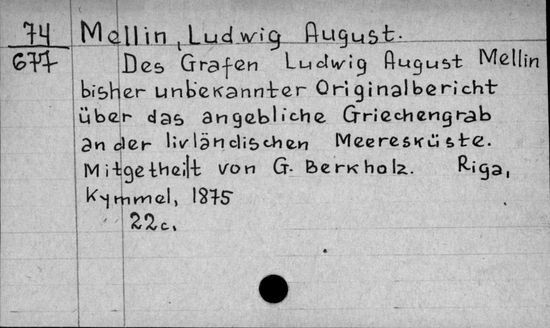 74
677
Mellin, Ludwig August.
Des Grafen Ludwig August Mellin
bisher unbekannter Originalbericht
über das angebliche Griechengrab
an der livländischen Meeresküste.
Mitgetheilt von G. Berkholz. Riga,
Kymmel, 1875
22c.